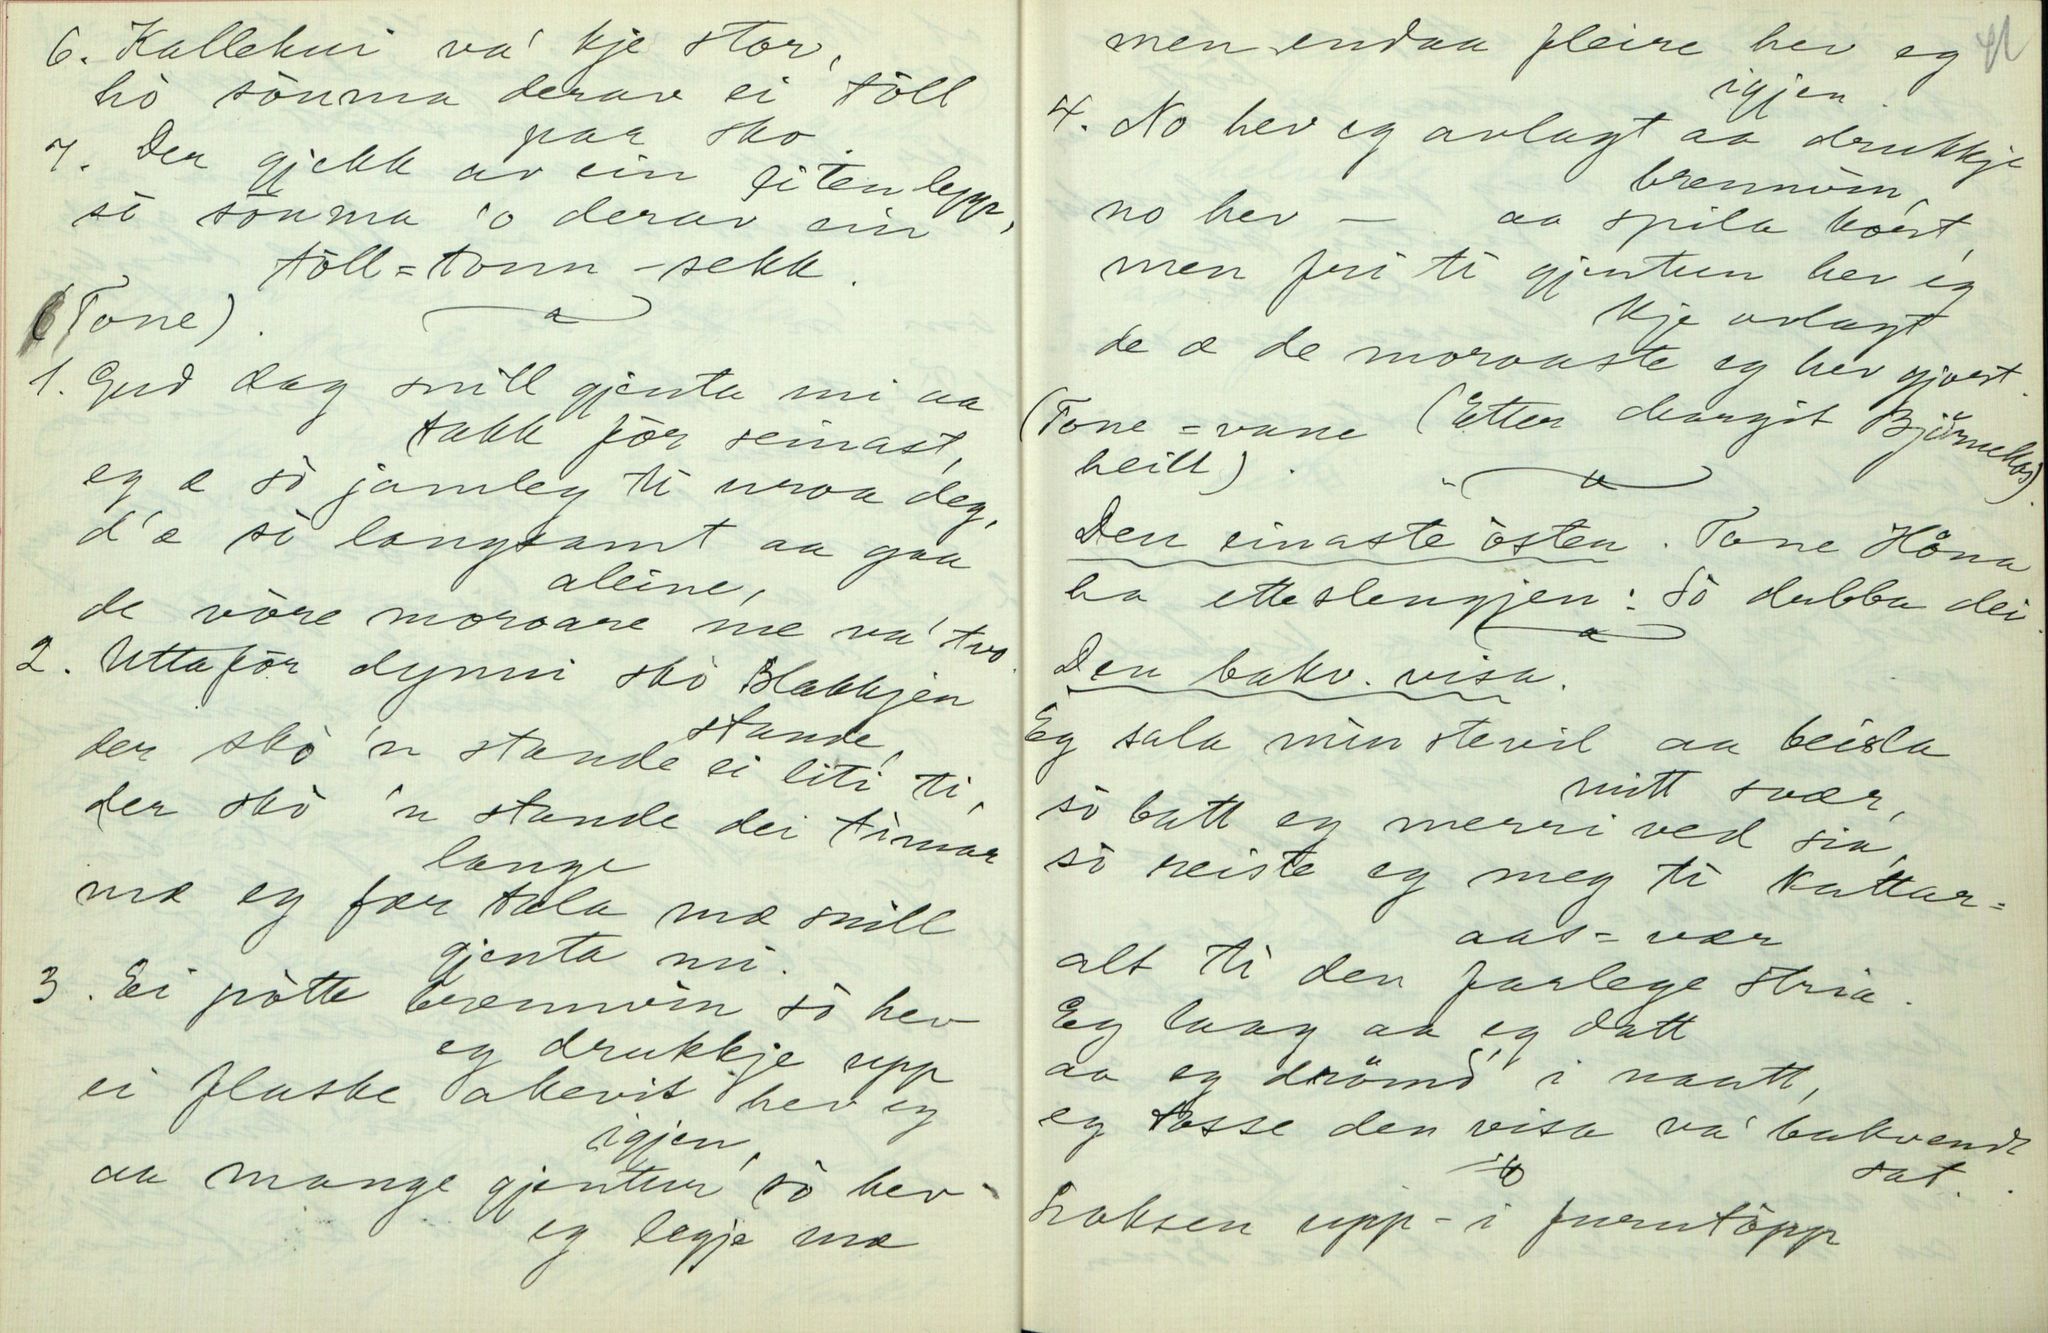 6. Kallehui va' kje stor,
hò sòuma derav ei tòll
par sko.
7. Der gjekk av ein liten lepp,
sò sòuma 'o derav ein
tòll-tonn-sekk.
(Tone).
1. Gud dag snill gjenta mi aa
takk fòr seinast,
eg æ sò jamleg ti uroa deg,
d'æ sò langsamt aa gaa
aleine,
de vòre moroare me va' tvo.
2. Uttafòr dynni skò Blakkjen
stande,
der skò 'n stande ei liti ti,
der skò 'n stande dei timar
lange
mæ eg fær tala mæ snill
gjenta mi.
3. Ei pòtte brennvin sò hev
eg drukkje upp
ei flaske akevit hev eg
igjen,
aa mange gjentur sò hev
eg legje mæ
men endaa fleire hev eg
igjen.
4. No hev eg avlagt aa drukkje
brennvin,
no hev — aa spila kort,
men fri ti gjentun hev eg
kje avlagt
de æ de moroaste eg hev gjort.
(Tone = vane (Etter Margit
heill).
Den einaste òsten. Tone Hòna
ha etteslengjen: Sò dubba dei.
Den bakv. visa.
Eg sala min stevil aa beisla
mitt svær,
sò batt eg merri ved sia,
sò reiste eg meg ti Kattar-
aas-vær
alt ti den farlege stria.
Eg laag aa eg datt
aa eg drömd' i naatt,
eg tosse den visa va' bakvendt
sat.
Laksen upp-i furutòpp